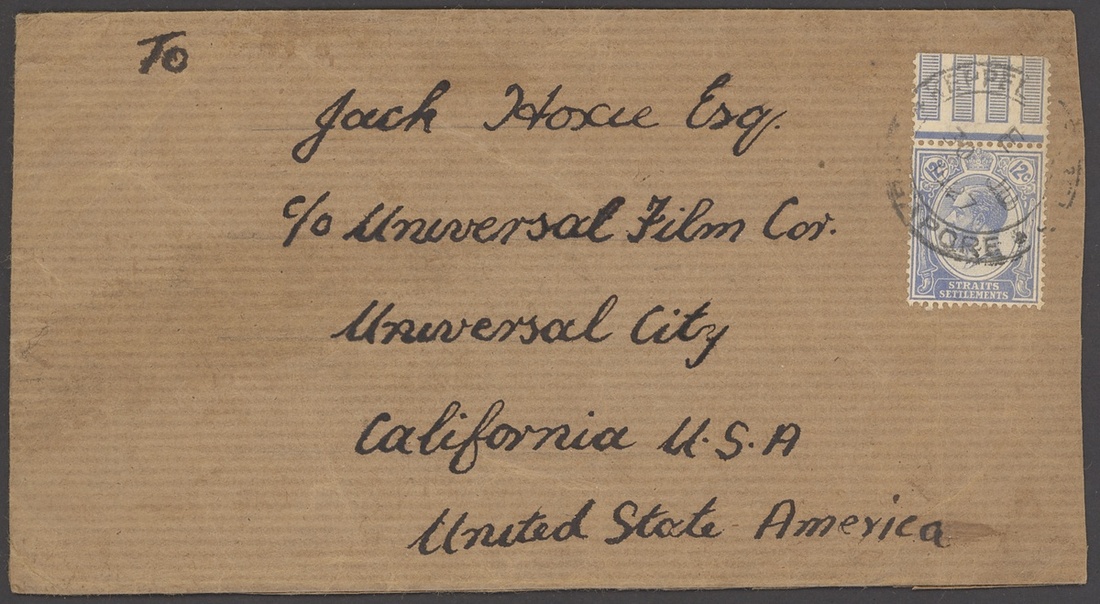 To
Jack Hoxie Esq.
c/o Universal Film Cor.
Universal City
California U.S.A
United State America
12c 12c
STRAITS
SETTLEMENTS
PORE